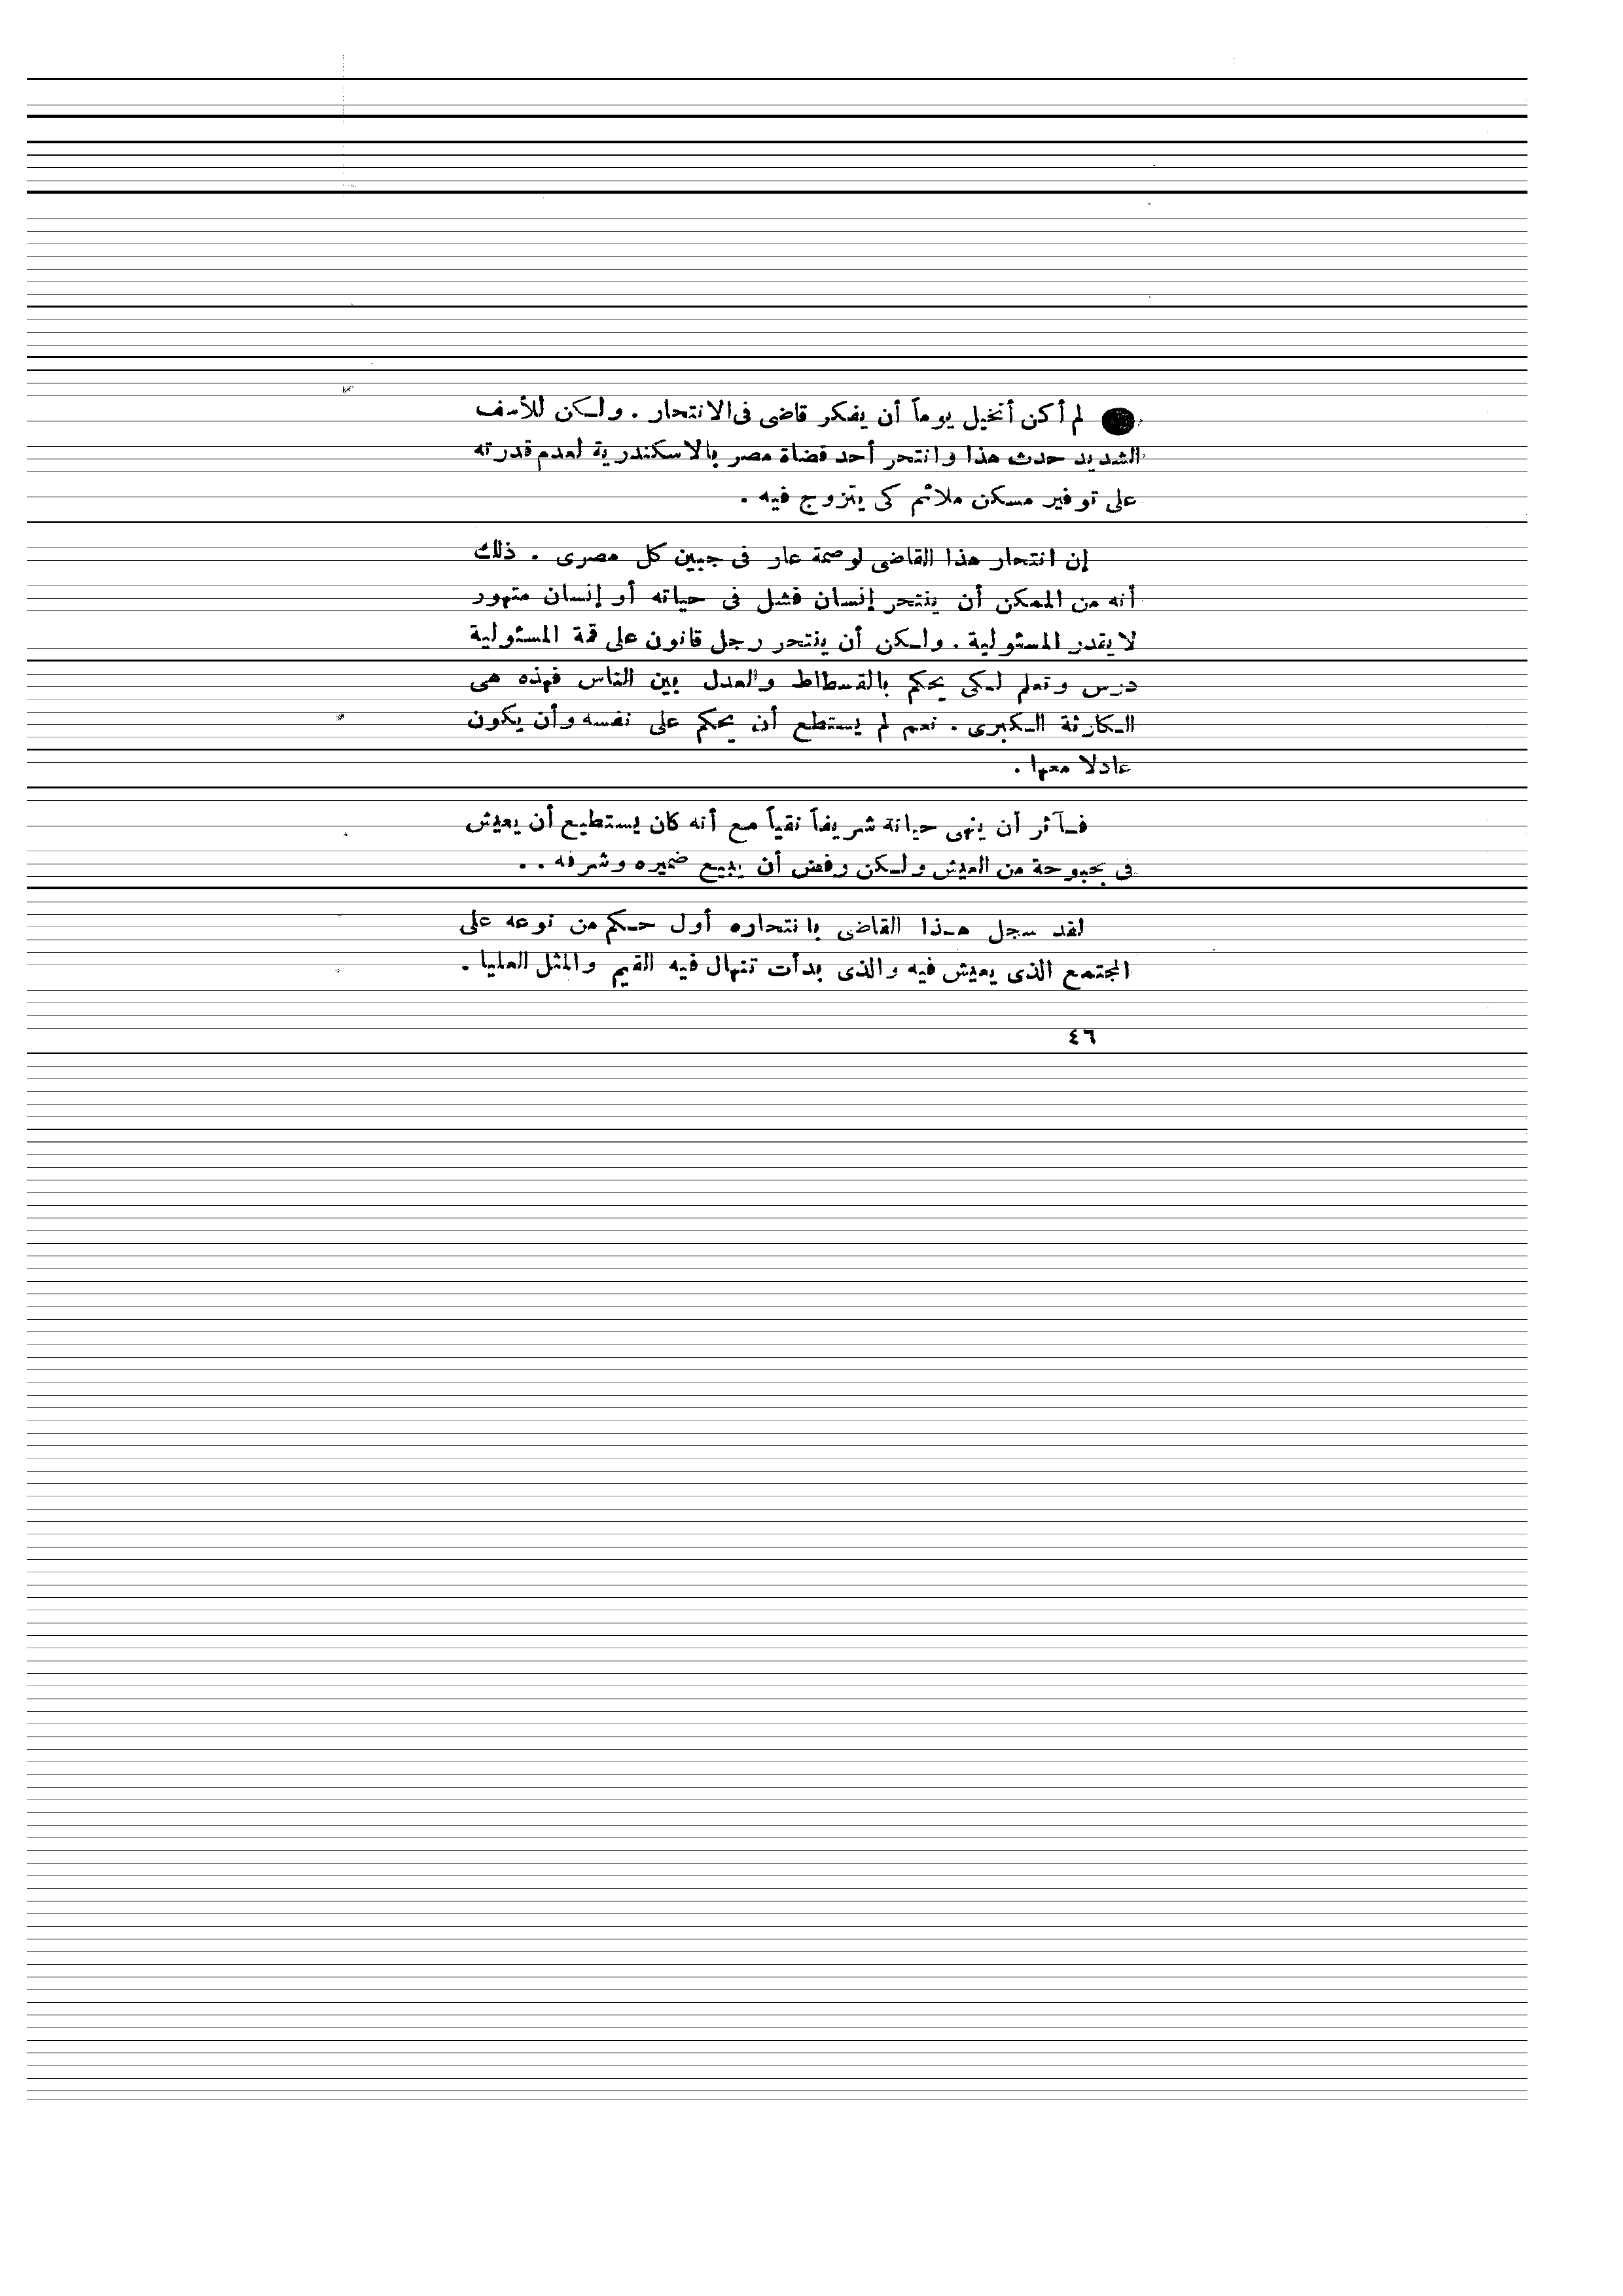 ● لم أكن أتخيل يوماً أن يفكر قاضى فى الانتحار . ولكن للأسف
الشديد حدث هذا وانتحر أحد قضاة مصر بالاسكندرية لعدم قدرته
على توفير مسكن ملائم كى يتزوج فيه .
إن انتحار هذا القاضى لوصمة عار فى جبين كل مصرى . ذلك
أنه من الممكن أن ينتحر إنسان فشل فى حياته أو إنسان متهور
لا يقدر المسئولية . ولكن أن ينتحر رجل قانون على قمة المسئولية
درس وتعلم لكى يحكم بالقسطاط والعدل بين الناس فهذه هى
الكارثة الكبرى . نعم لم يستطع أن يحكم على نفسه وأن يكون
عادلا معها .
فآثر أن ينهى حياته شريفاً نقياً مع أنه كان يستطيع أن يعيش
فى بحبوحة من العيش ولكن رفض أن يبيع ضميره وشرفه . .
لقد سجل هذا القاضى بانتحاره أول حكم من نوعه على
المجتمع الذى يعيش فيه والذى بدأت تنهال فيه القيم والمثل العليا .
٤٦